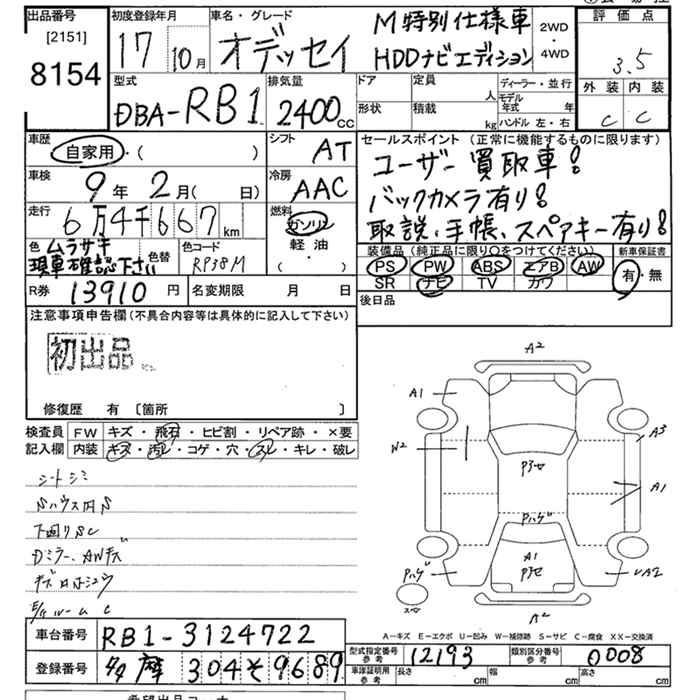 出品番号 初度登録年月 車名・グレード 評価点
[2151] 17 10月 オデッセイ M特別仕様車 2WD
8154 HDDナビエディション ・4WD 3.5
型式 排気量 ドア 定員 人 ディーラー・並行 外装 内装
DBA-RB1 2400cc 形状 積載 kg モデル年式 年 C C
ハンドル 左・右
車歴 シフト セールスポイント (正常に機能するものに限ります)
自家用・( ) AT ユーザー買取車!
車検 冷房 バックカメラ有り!
9年 2月( 日) AAC 取説、手帳、スペアキー有り!
走行 燃料
6万4千667km ガソリン
色 ムラサキ 色替 色コード 軽油 装備品 (純正品に限り○をつけてください) 新車保証書
現車確認下さい RP38M ( ・ ) PS PW ABS エアB AW 有・無
SR ナビ TV カワ
R券 13910円 名変期限 月 日 後日品
注意事項申告欄(不具合内容等は具体的に記入して下さい)
初出品
修復歴 有 [箇所 ]
検査員 FW キズ・飛石・ヒビ割・リペア跡・×要
記入欄 内装 キズ・汚レ・コゲ・穴・スレ・キレ・破レ
シートシミ
下回りSC
Dミラー、AWキズ
A2
A1
W2 A3
Pヨセ A1
Pハゲ
A1
Pハゲ Pヨセ
A2
A-キズ E-エクボ U-凹み W-補修跡 S-サビ C-腐食 XX-交換済
車台番号 RB1-3124722 型式指定番号 参考 12193 類別区分番号 参考 0008
登録番号 多摩 304 そ 9689 車庫証明用 参考 長さ cm 幅 cm 高さ cm